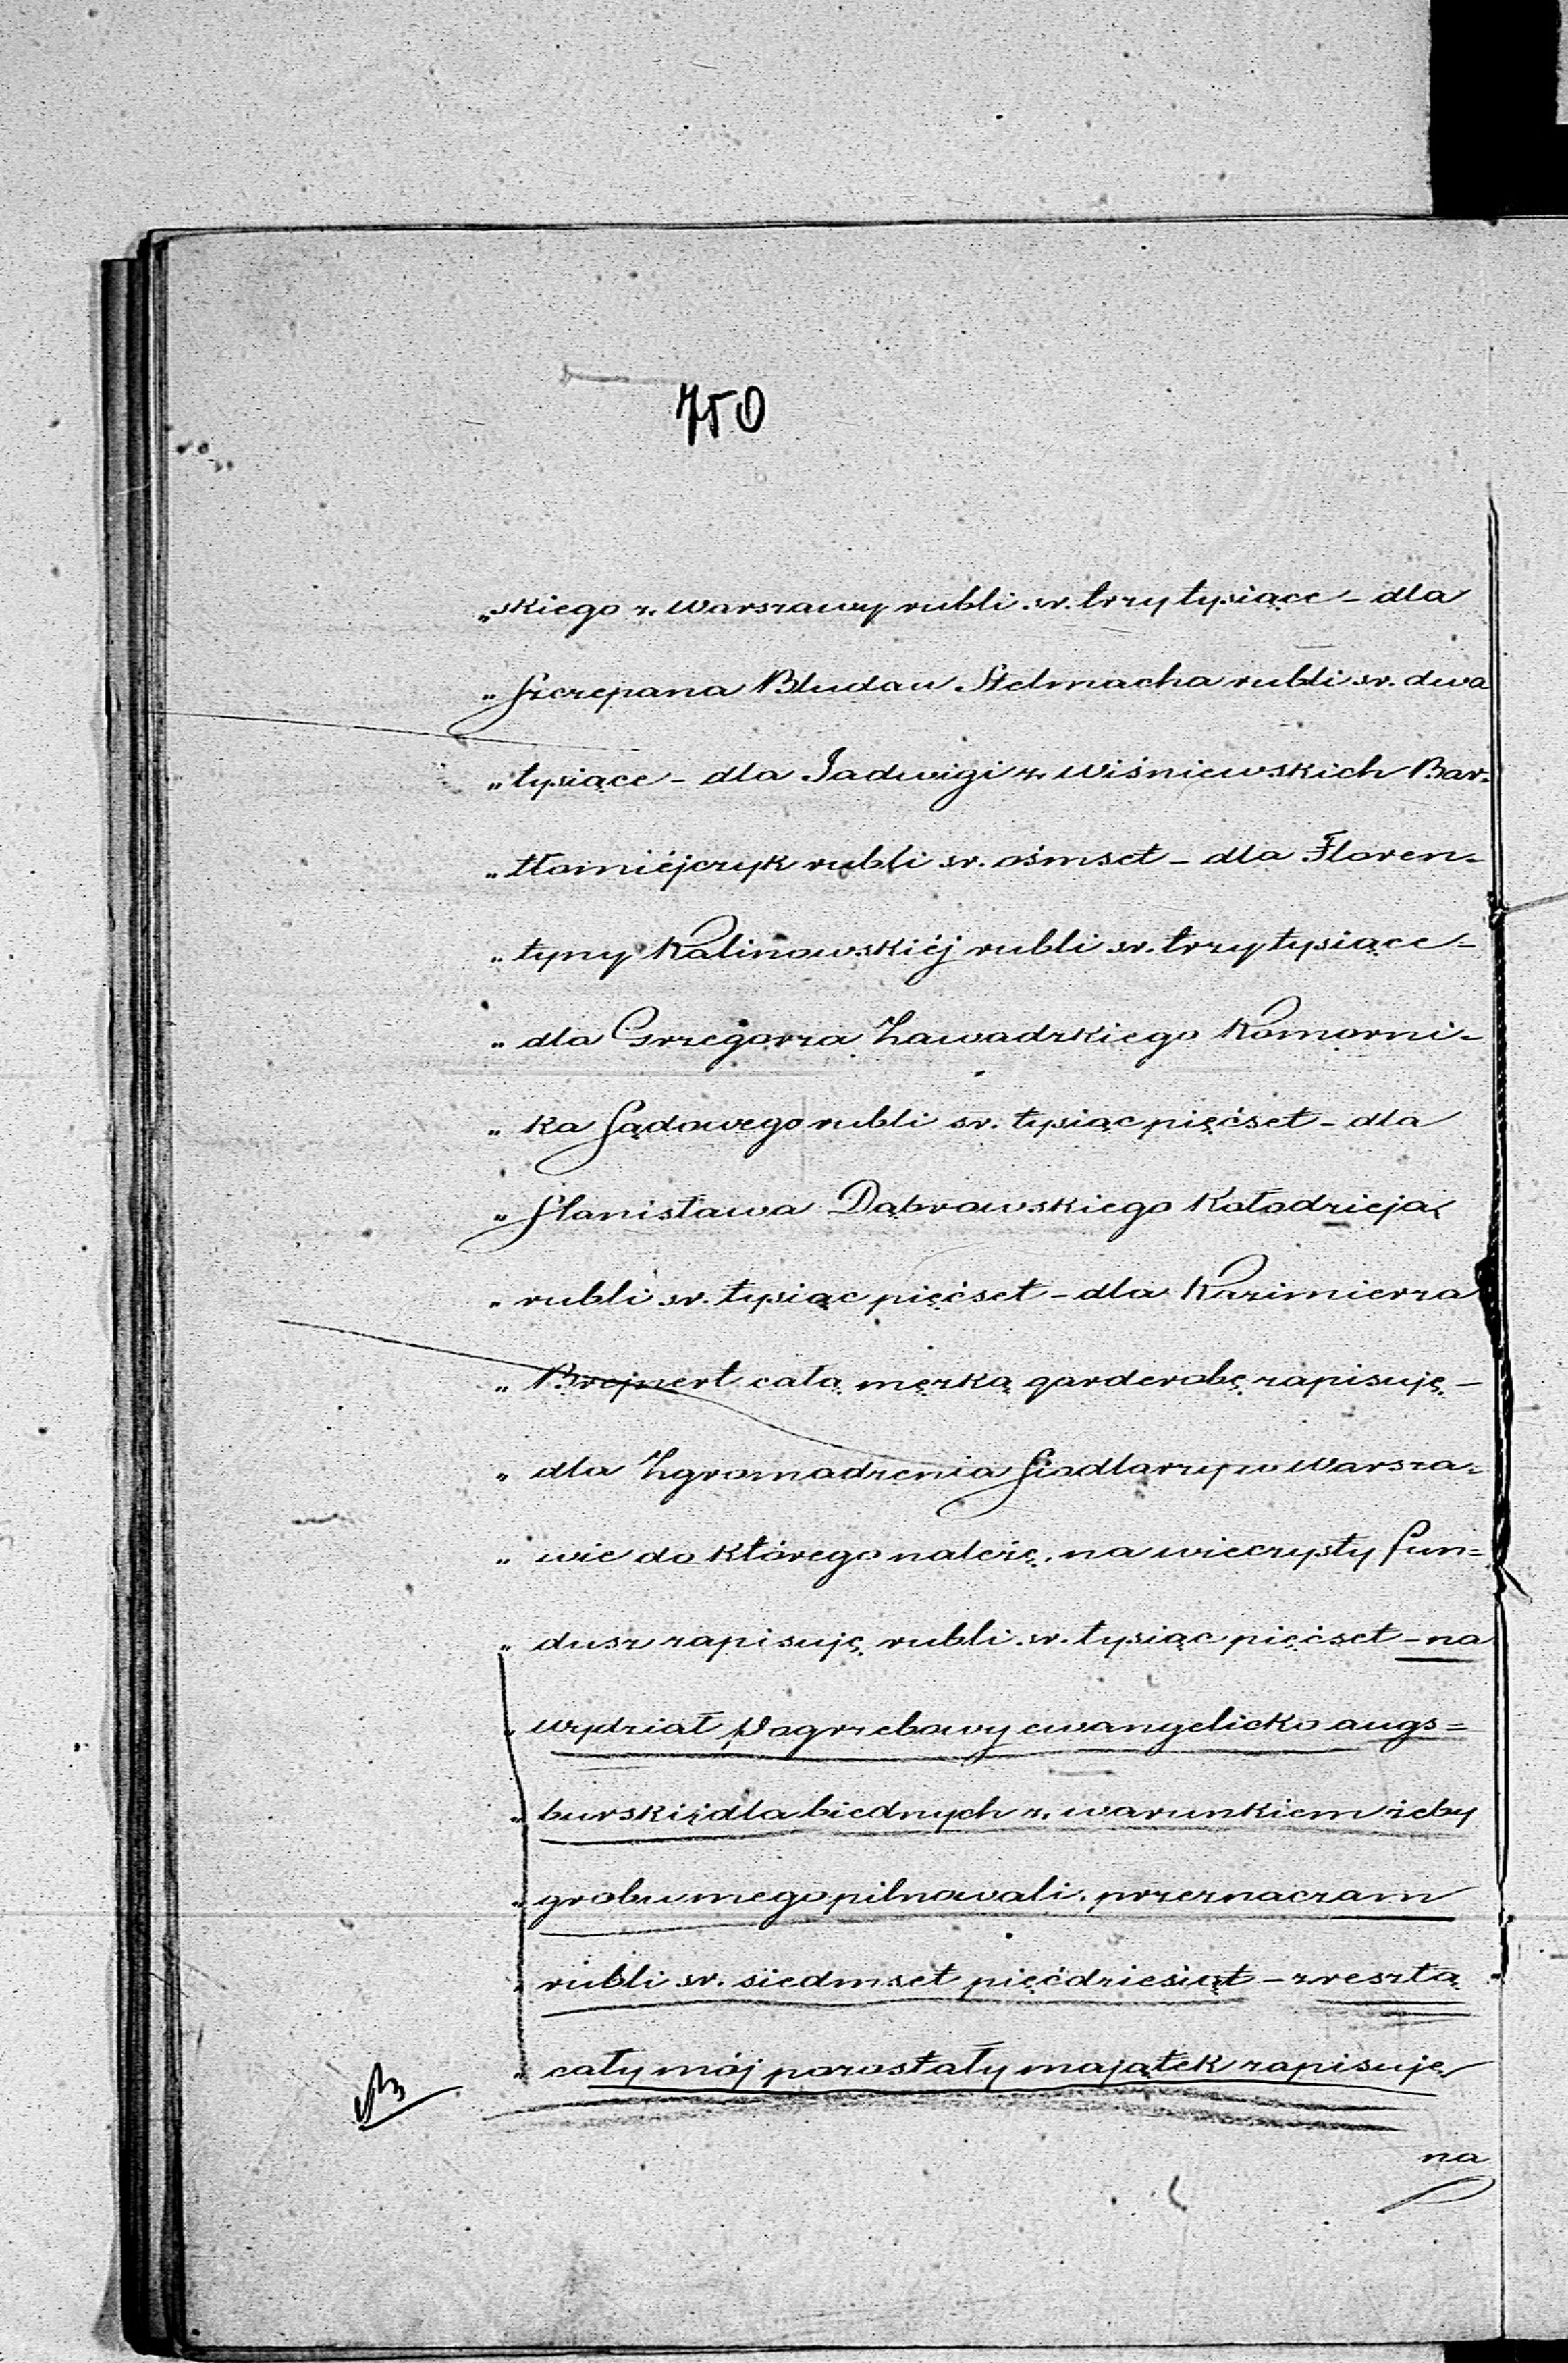 750
„skiego z Warszawy rubli sr. trzy tysiące – dla
„Szczepana Bludau Stelmacha rubli sr. dwa
„tysiące – dla Jadwigi z Wiśniewskich Bar-
„tłomiéjczyk rubli sr. ośmset – dla Floren-
„tyny Kalinowskiéj rubli sr. trzy tysiące –
„dla Grzegorza Zawadzkiego Komorni-
„ka Sądowego rubli sr. tysiąc pięćset – dla
„Stanisława Dąbrowskiego Kołodzieja
„rubli sr. tysiąc pięćset – dla Kazimierza
„Brejnert całą męzką garderobę zapisuję –
„dla Zgromadzenia Siodlarzy w Warsza-
„wie do którego należę, na wieczysty fun-
„dusz zapisuję rubli sr. tysiąc pięćset – na
„wydział Pogrzebowy ewangelicko augs-
„burski dla biednych z warunkiem żeby
„grobu mego pilnowali, przeznaczam
„rubli sr. siedmset pięćdziesiąt – zresztą
„cały mój pozostały majątek zapisuję
na